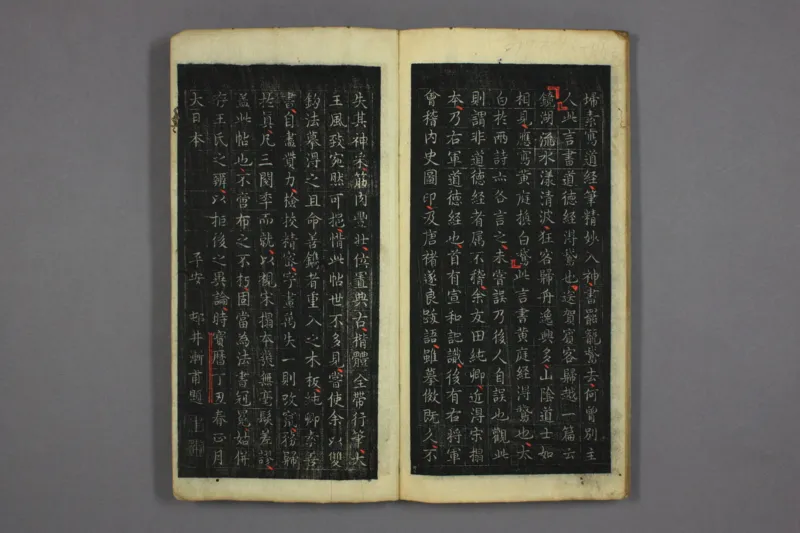 埽素寫道經筆精妙入神書罷籠鵞去何曾別主
人此言書道德經得鵞也送賀賓客歸越一篇云
鏡湖流水漾清波狂客歸舟逸興多山陰道士如
相見應寫黃庭換白鵞此言書黃庭經得鵞也太
白於兩詩亦各言之未嘗誤乃後人自誤也觀此
則謂非道德經者屬不稽余友田純卿近得宋搨
本乃右軍道德經也首有宣和記識後有右將軍
會稽內史圖印及唐褚遂良跋語雖摹倣既久不
失其神采筋肉豐壯位置典古楷體全帶行筆大
王風致宛然可挹惜此帖世不多見嘗使余以雙
鉤法摹得之且命善鐫者重入之木板純卿奉吾
書自盡貲力檢挍精密字畫萬失一則改窾務歸
於貞凡三閱季而就以視宋搨本幾無毫髮差謬
蓋此帖也不啻布之不朽固當為法書冠冕姑併
存王氏之語以柜後之異論時寶曆丁丑春正月
大日本 平安 邨井漸甫題